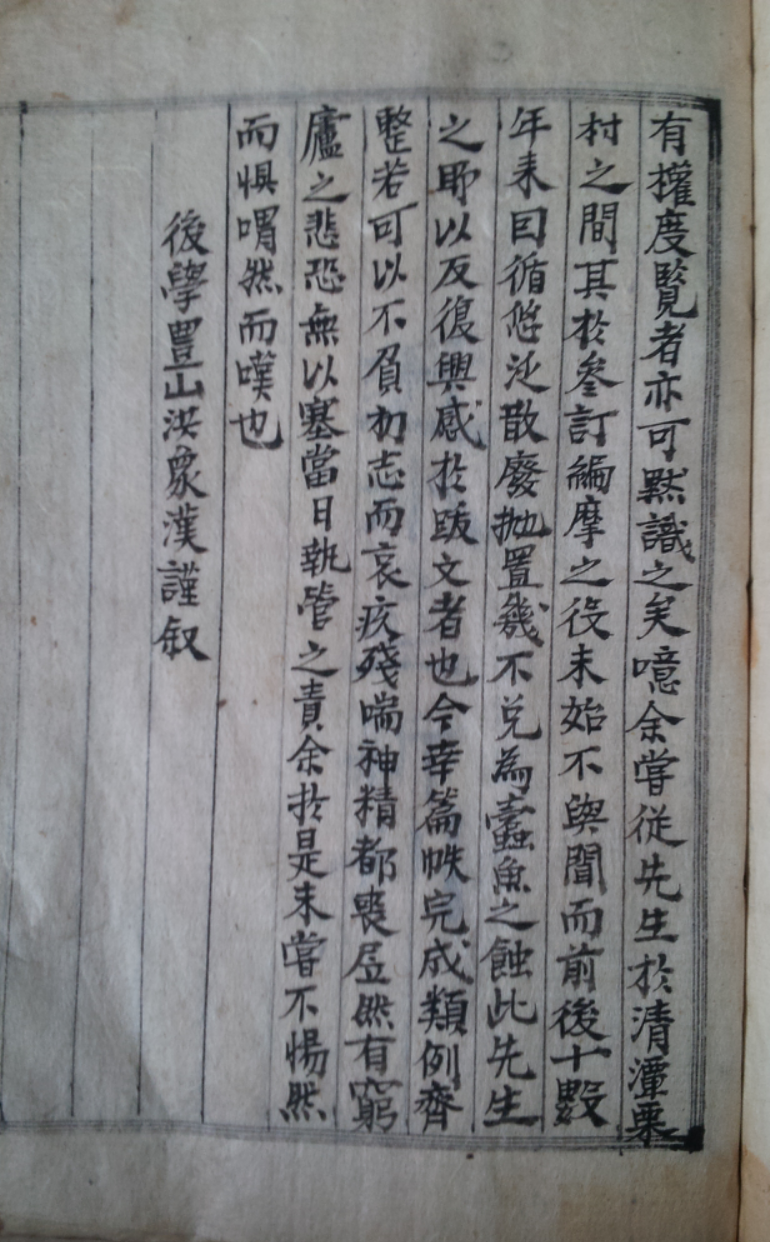 有權度覽者亦可默識之矣噫余嘗從先生於清潭栗
村之間其於參訂編摩之役未始不與聞而前後十數
年來因循悠泛散廢抛置幾不免為蠹魚之蝕此先生
之所以反復興感於跋文者也今幸篇帙完成類例齊
整若可以不負初志而哀疚殘喘神精都喪居然有窮
廬之悲恐無以塞當日執管之責余於是未嘗不惕然
而惧喟然而嘆也
後學豐山洪象漢謹叙